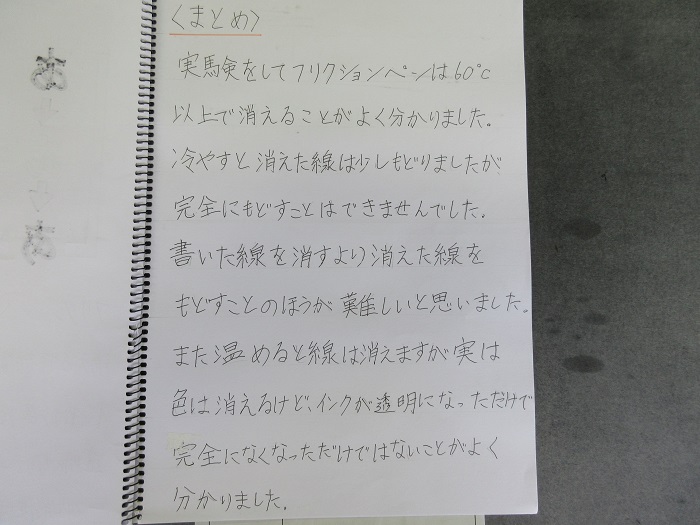 〈まとめ〉
実験をしてフリクションペンは60℃
以上で消えることがよく分かりました。
冷やすと消えた線は少しもどりましたが、
完全にもどすことはできませんでした。
書いた線を消すより消えた線を
もどすことのほうが難しいと思いました。
また温めると線は消えますが実は
色は消えるけど、インクが透明になっただけで
完全になくなっただけではないことがよく
分かりました。